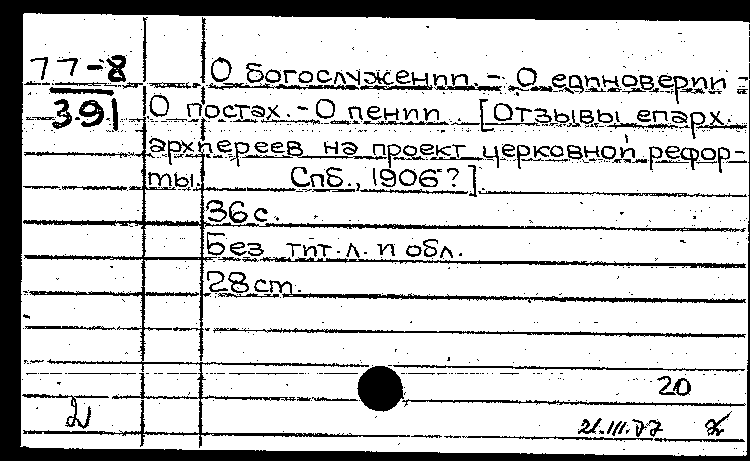 77-8
391
О богослужении. - О единоверии -
О постах. - О пении. [Отзывы епарх.
архиереев на проект церковной рефор-
мы. Спб., 1906?].
36 с.
Без тит. л. и обл.
28 см.
20
21.III.77